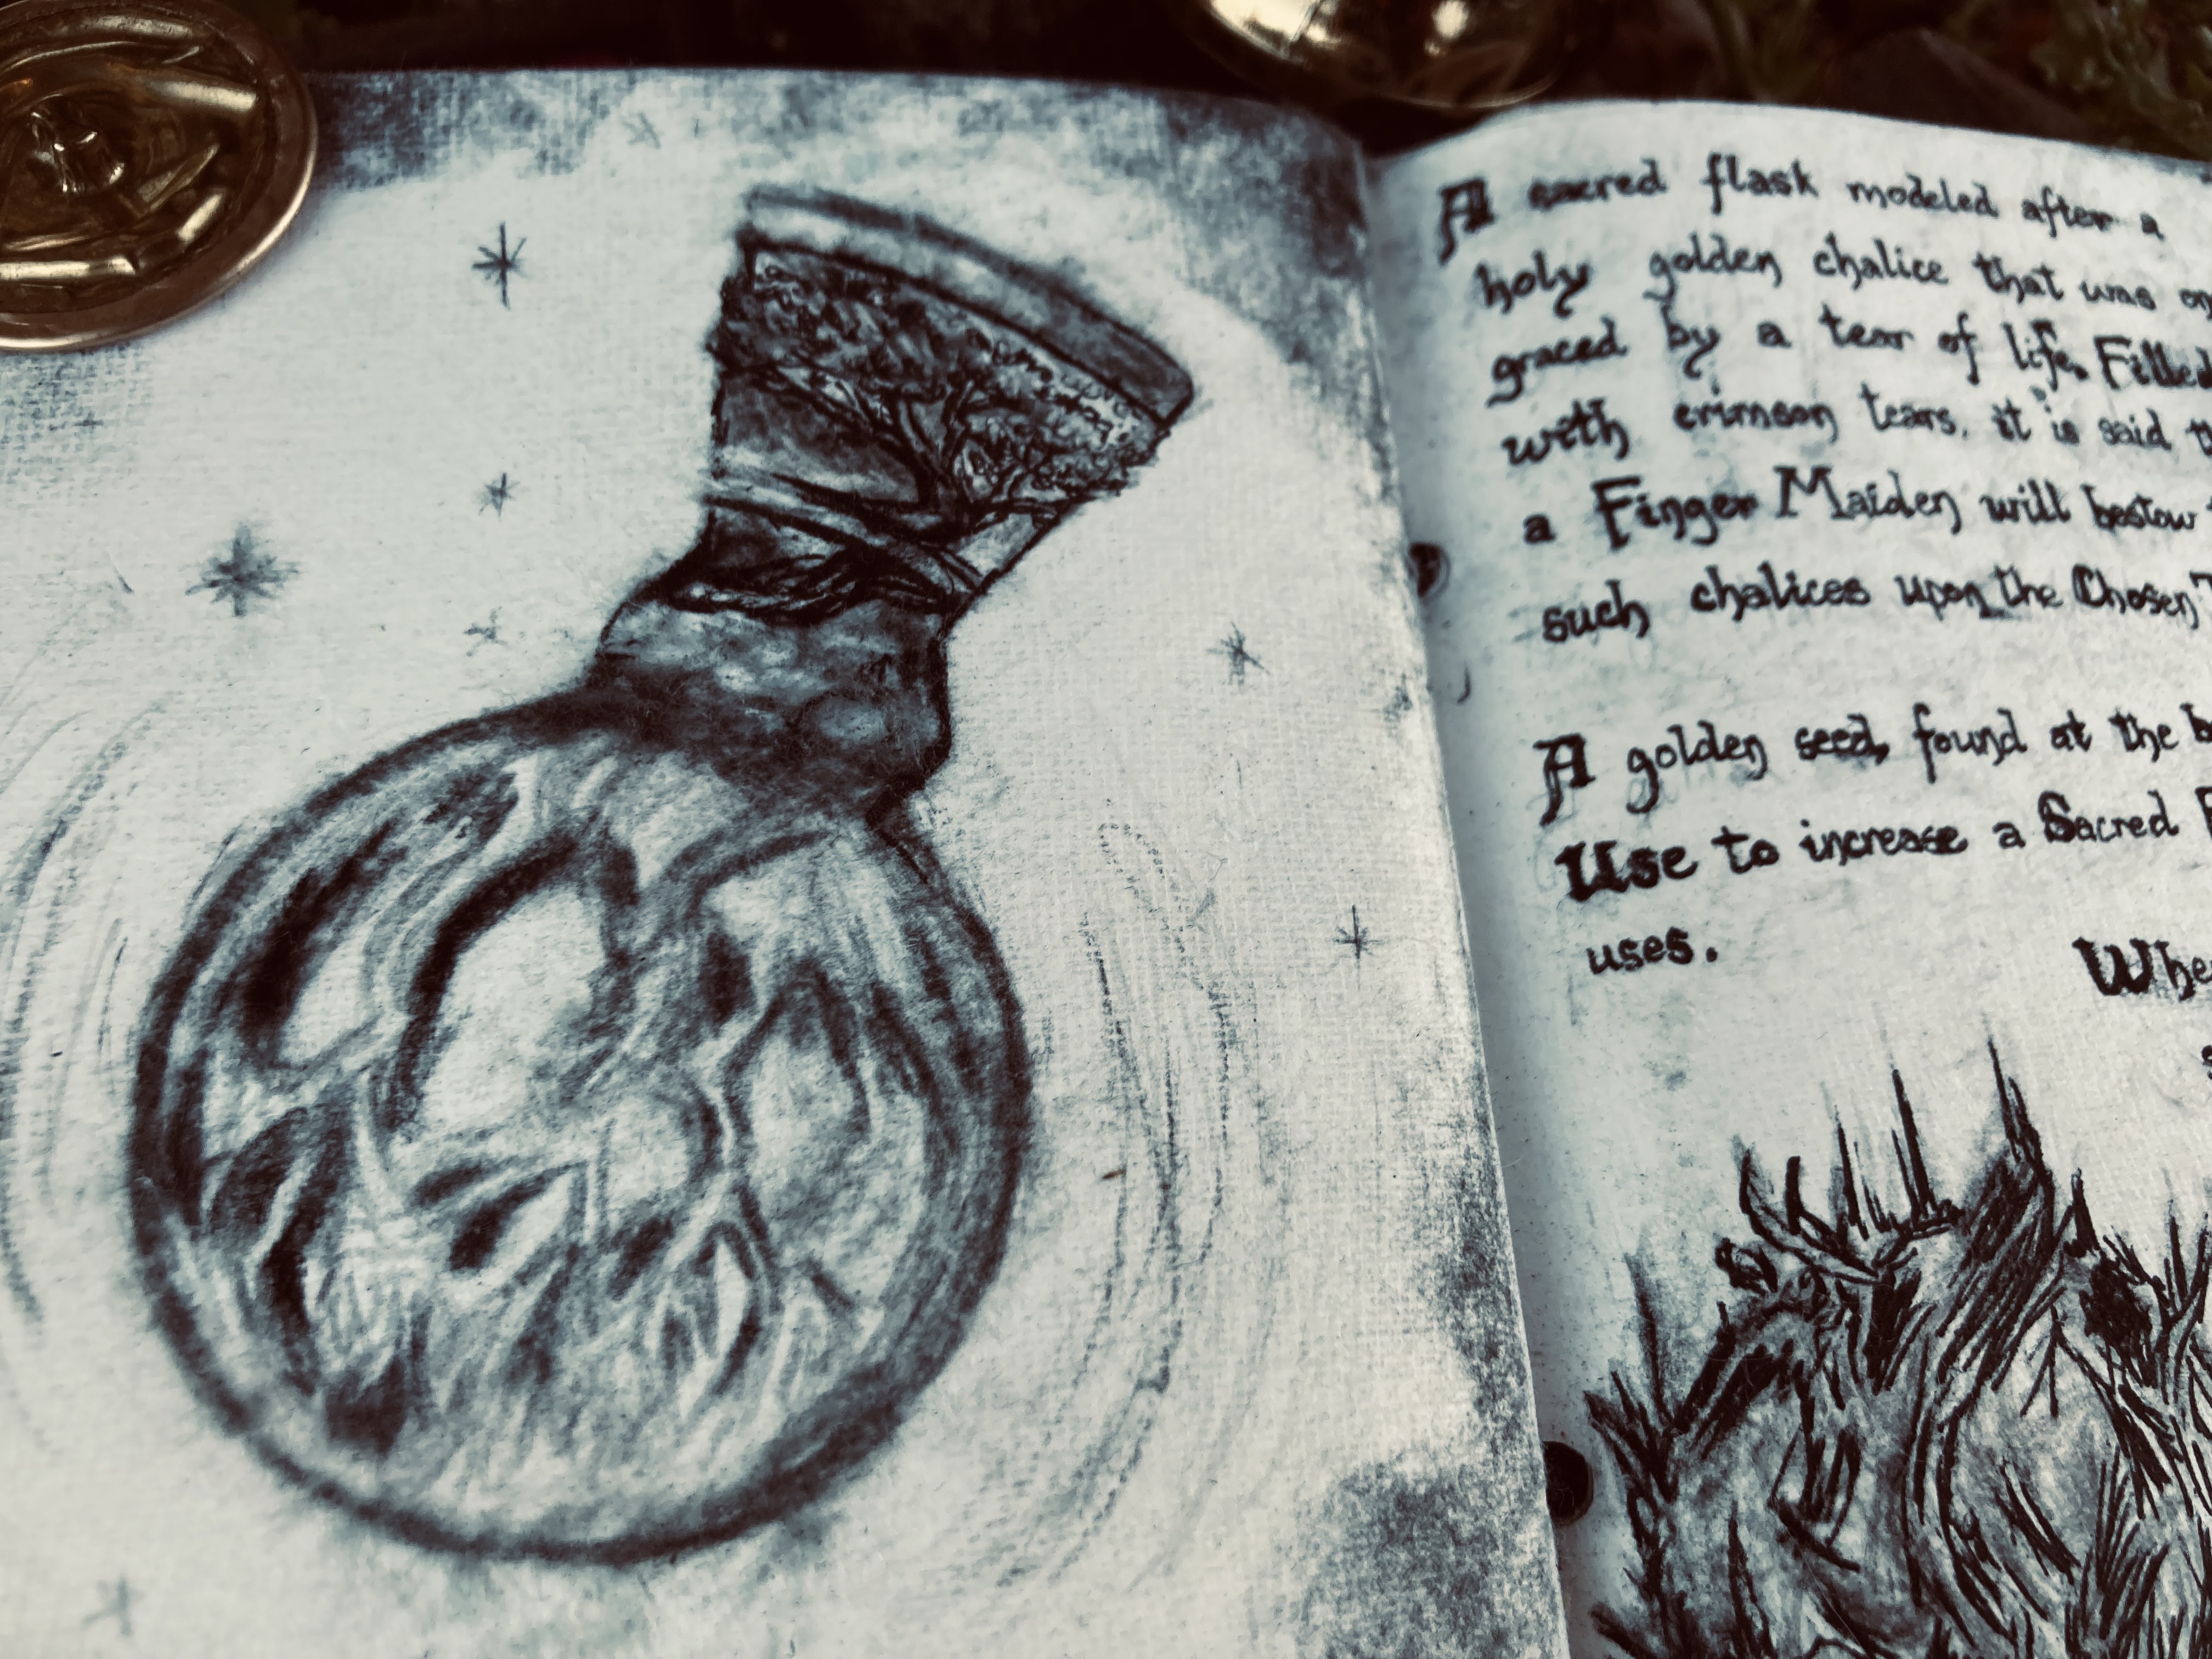 A sacred flask modeled after a
holy golden chalice that was
graced by a tear of life. Filled
with crimson tears, it is said
a Finger Maiden will bestow
such chalices upon the Chosen
A golden seed, found at the
Use to increase a Sacred
uses.